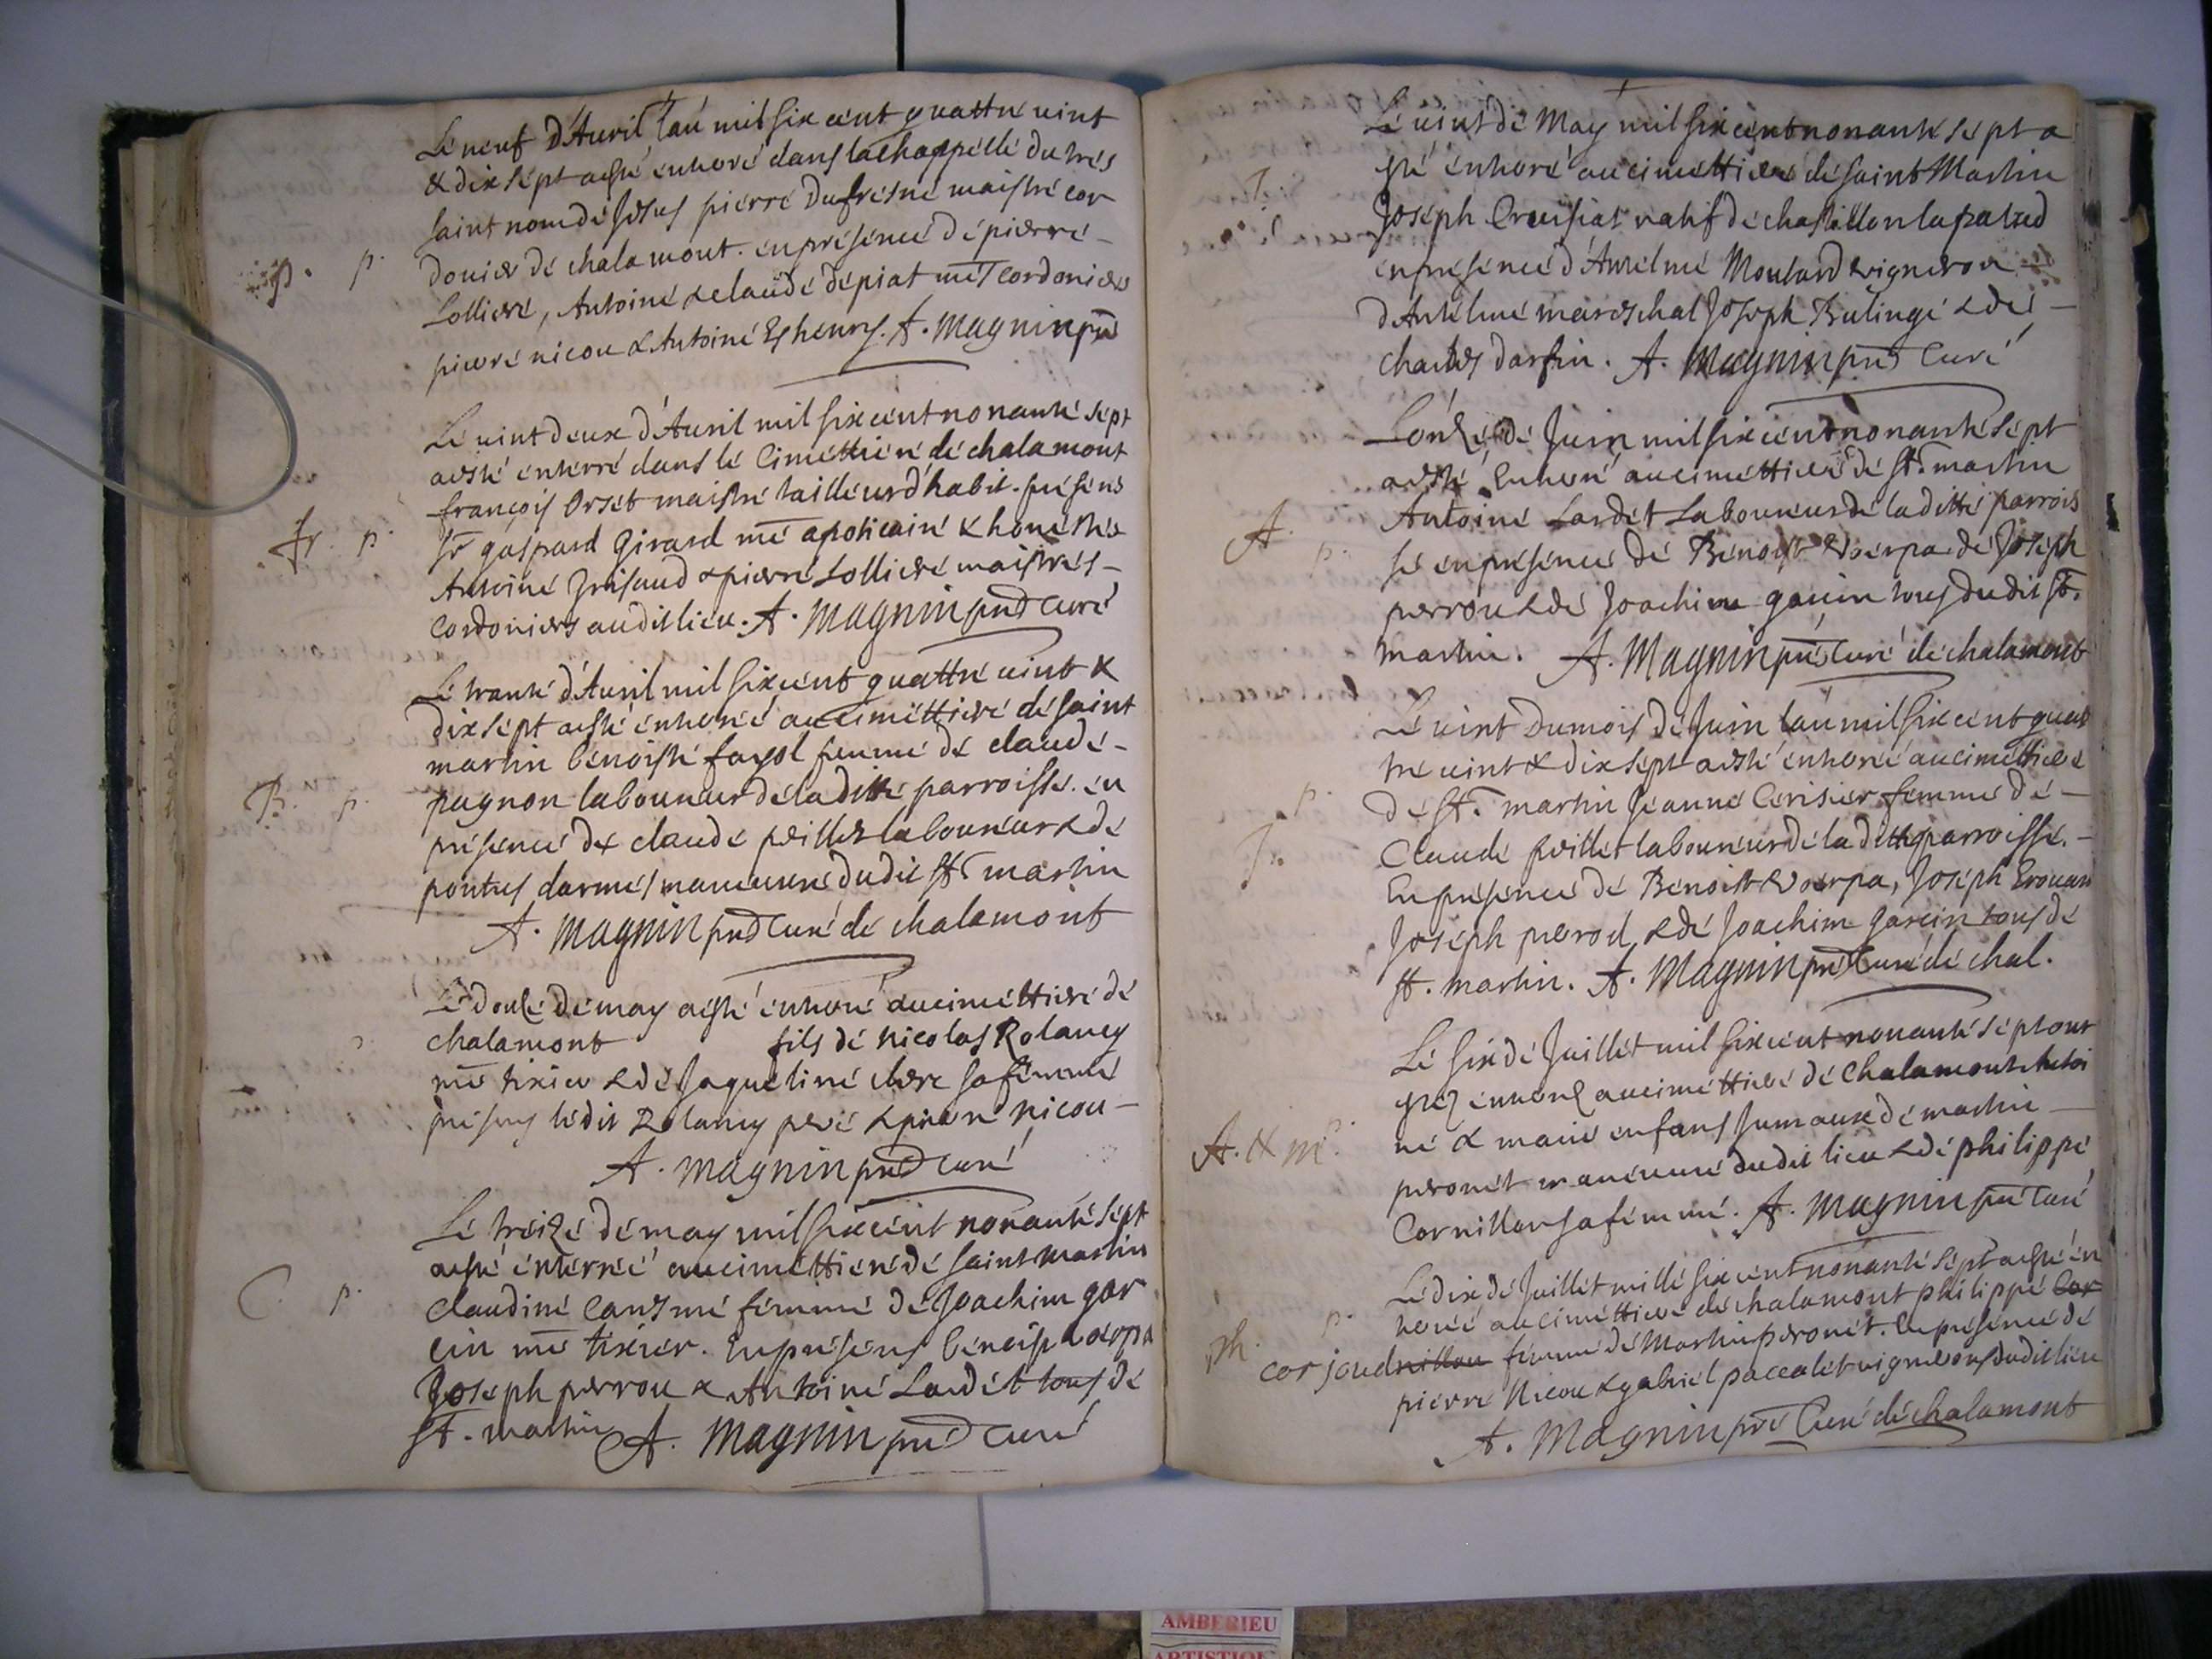 Le neuf d'Avril l'an mil six cent quattre vint
& dix sept a esté enterré dans la chappelle du tres
saint nom de Jesus pierre Dufresne maistre cor
p. p. donier de chalamont. en présence de pierre -
Lolliere, Antoine & claude depiat mes cordoniers
pierre nicou & Antoine Eshenry. A. Magnin pre
Le vint deux d'Avril mil six cent nonante sept
a esté enterré dans le Cimettiere de chalamont
françois Orset maistre tailleur d'habit. présens
fr. p. Sr gaspard Girard me apoticaire & honestes
Antoine Grisaud & pierre Lolliere maistres -
Cordoniers audit lieu. A. Magnin pre Curé
Le trante d'Avril mil six cent quattre vint &
dix sept a esté enterée au cimettiere de saint
martin benoiste fayol femme de claude -
B. p. pugnon laboureur de laditte parroisse. en
présence de claude peillet laboureur & de
pontus darmes manœuvre dudit st martin
A. Magnin pre Curé de chalamont
Le douze de may a esté enterré au cimettiere de
chalamont fils de Nicolas Rolancy
me tixier & de Jaqueline clerc sa femme
présens ledit Rolancy pere & pierre nicou -
A. Magnin pre Curé
Le treize de may mil six cent nonante sept
a esté enterrée au cimettiere de saint Martin
C. p. Claudine femme de Joachim gar
cin me tixier. En présens benoist voerpa
Joseph perrou & Antoine Lardet tous de
St. martin A. Magnin pre Curé
Le vint de May mil six cent nonante sept a
J. esté enterré au cimettiere de saint Martin
Joseph Croisiat natif de chastillon la palud
en présence d'Anselme Moulard vigneron -
d'Antelme mareschal Joseph Bulinge & de -
Charles darfin. A. Magnin pre Curé
L'onze de Juin mil six cent nonante sept
a esté Enterré au cimettiere de St. martin
A. p. Antoine Lardet Laboureur de laditte parrois
se en présence de Benoist Voerpa de Joseph
perrou & de Joachim garcin tous dudit St.
Martin. A. Magnin pre Curé de chalamont
Le vint du mois de Juin l'an mil six cent quat
tre vint & dix sept a esté enterée au cimettiere
p. de St. martin Jeanne Cerisier femme de -
J. Claude peillet laboureur de laditte parroisse. -
En présence de Benoist Voerpa, Joseph
Joseph perrod & de Joachim garcin tous de
St. Martin. A. Magnin pre Curé de chal.
Le six de Juillet mil six cent nonante sept ont
estez enterrez au cimettiere de Chalamont Antoi
A. & M. p. ne & marie enfans Jumaux de martin -
peronet manœuvre dudit lieu & de philippe
Cornillon sa femme. A. Magnin pre Curé
Le dix de Juillet mille six cent nonante sept a esté en
p. terée au cimettiere de chalamont philippe Cor
ph. corjoud nillon femme de Martin peronet. En présence de
pierre Nicou & gabriel paccalet vignerons dudit lieu
A. Magnin pre Curé de chalamont
AMBERIEU
ARTISTIQ